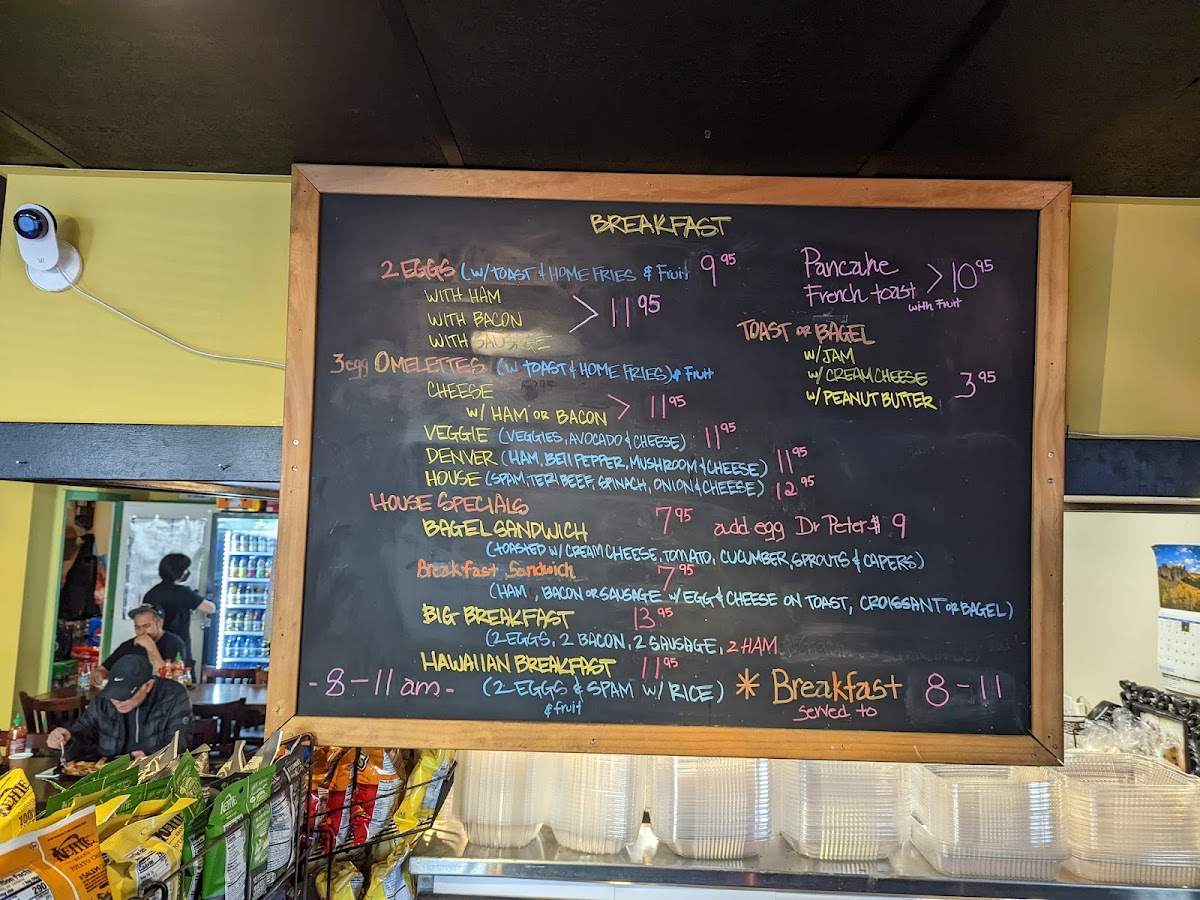 BREAKFAST
2 EGGS (W/TOAST & HOME FRIES & Fruit 9 95
WITH HAM
WITH BACON > 11 95
WITH SAUSAGE
3egg OMELETTES (W TOAST & HOME FRIES) & Fruit
CHEESE
W/ HAM OR BACON > 11 95
VEGGIE (VEGGIES, AVOCADO & CHEESE) 11 95
DENVER (HAM, BELL PEPPER, MUSHROOM & CHEESE) 11 95
HOUSE (SPAM, TERI BEEF, SPINACH, ONION & CHEESE) 12 95
HOUSE SPECIALS
BAGEL SANDWICH 7 95 add egg Dr Peter $ 9
(TOASTED W/ CREAM CHEESE, TOMATO, CUCUMBER, SPROUTS & CAPERS)
Breakfast Sandwich 7 95
(HAM, BACON OR SAUSAGE W/ EGG & CHEESE ON TOAST, CROISSANT OR BAGEL)
BIG BREAKFAST 13 95
(2 EGGS, 2 BACON, 2 SAUSAGE, 2 HAM
HAWAIIAN BREAKFAST 11 95
(2 EGGS & SPAM W/ RICE)
& fruit
- 8 - 11 am -
Pancake
French toast > 10 95
with Fruit
TOAST OR BAGEL
W/ JAM
W/ CREAM CHEESE 3 95
W/ PEANUT BUTTER
* Breakfast 8 - 11
served to
KETTLE
KETTLE
KETTLE
290